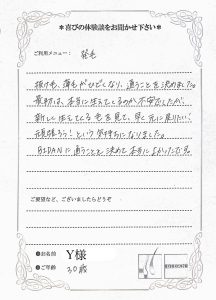 ＊喜びの体験談をお聞かせ下さい＊
ご利用メニュー： 発毛
抜け毛、薄毛がひどくなり、通うことを決めました。
最初は、本当に生えてくるのか不安でしたが、
新しく生えてくる毛を見て、早く元に戻りたい！
頑張ろう！という気持ちになりました。
BIDANに通うことを決めて本当によかったです。
ご要望など、ございましたらどうぞ
●お名前 Y様
●ご年齢 30歳